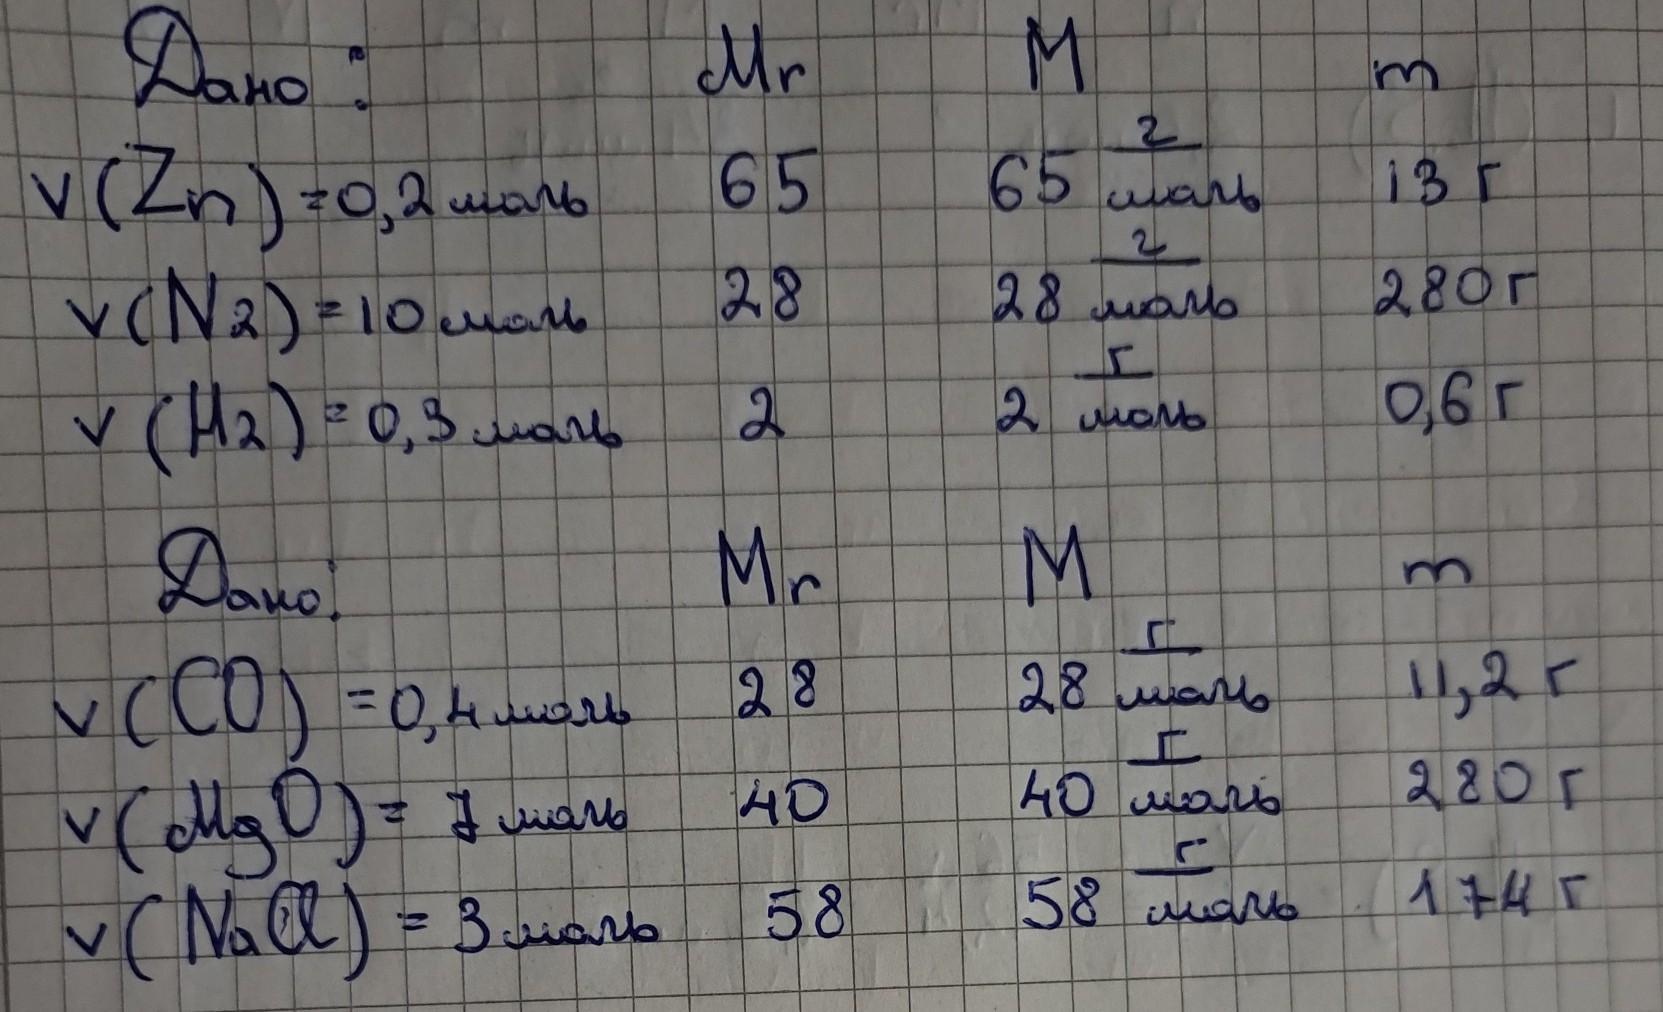 Дано: Mr M m
v(Zn)=0,2 моль 65 65 г/моль 13 г
v(N2)=10 моль 28 28 г/моль 280 г
v(H2)=0,3 моль 2 2 г/моль 0,6 г
Дано: Mr M m
v(CO)=0,4 моль 28 28 г/моль 11,2 г
v(MgO)=7 моль 40 40 г/моль 280 г
v(NaCl)=3 моль 58 58 г/моль 174 г